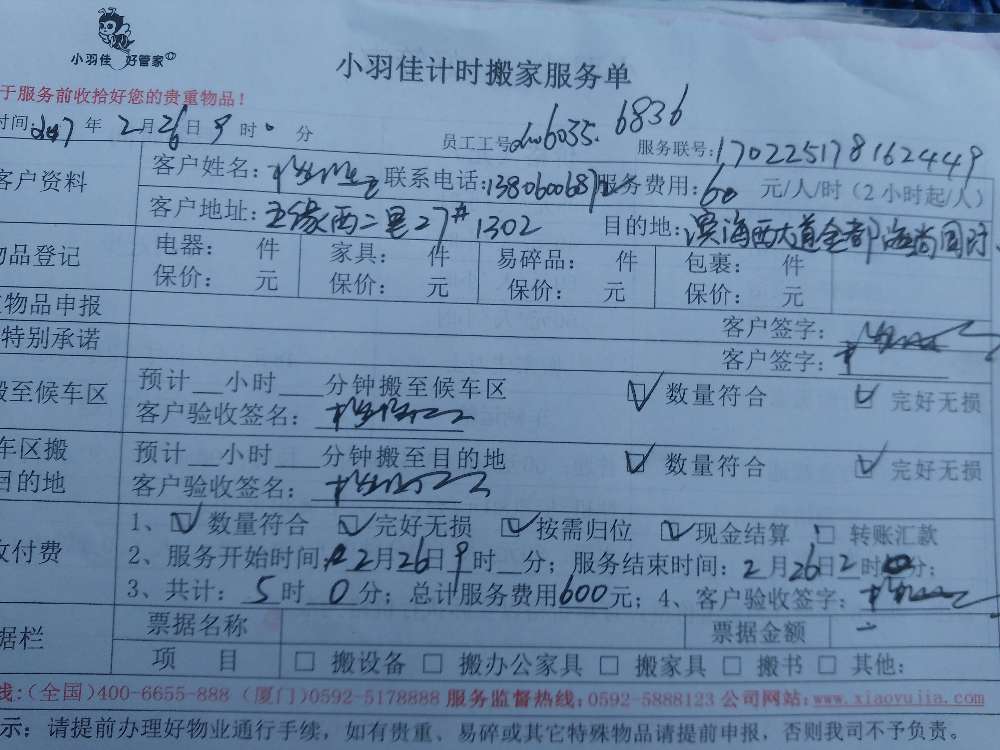 小羽佳 好管家
小羽佳计时搬家服务单
于服务前收拾好您的贵重物品！
时间: 2017年 2月26日 9时 0分 员工工号 6035. 6836 服务联号: 170225178162449
客户资料 客户姓名: 联系电话: 服务费用: 60 元/人/时（2小时起/人）
客户地址: 五缘西二里27#1302 目的地: 滨海西大道金都海尚国际
物品登记 电器: 件 家具: 件 易碎品: 件 包裹: 件
保价: 元 保价: 元 保价: 元 保价: 元
物品申报 客户签字:
特别承诺 客户签字:
搬至候车区 预计__小时___分钟搬至候车区 ☑ 数量符合 ☑ 完好无损
客户验收签名:
车区搬 预计__小时___分钟搬至目的地 ☑ 数量符合 ☑ 完好无损
目的地 客户验收签名:
收付费 1、☑ 数量符合 ☑ 完好无损 ☑ 按需归位 ☑ 现金结算 □ 转账汇款
2、服务开始时间: 2月26日9时__分; 服务结束时间: 2月26日2时0分;
3、共计: 5时0分; 总计服务费用600元; 4、客户验收签字:
据栏 票据名称 票据金额
项 目 □ 搬设备 □ 搬办公家具 □ 搬家具 □ 搬书 □ 其他:
线:(全国)400-6655-888 (厦门)0592-5178888 服务监督热线:0592-5888123 公司网站:www.xiaoyujia.com
示: 请提前办理好物业通行手续，如有贵重、易碎或其它特殊物品请提前申报，否则我司不予负责。